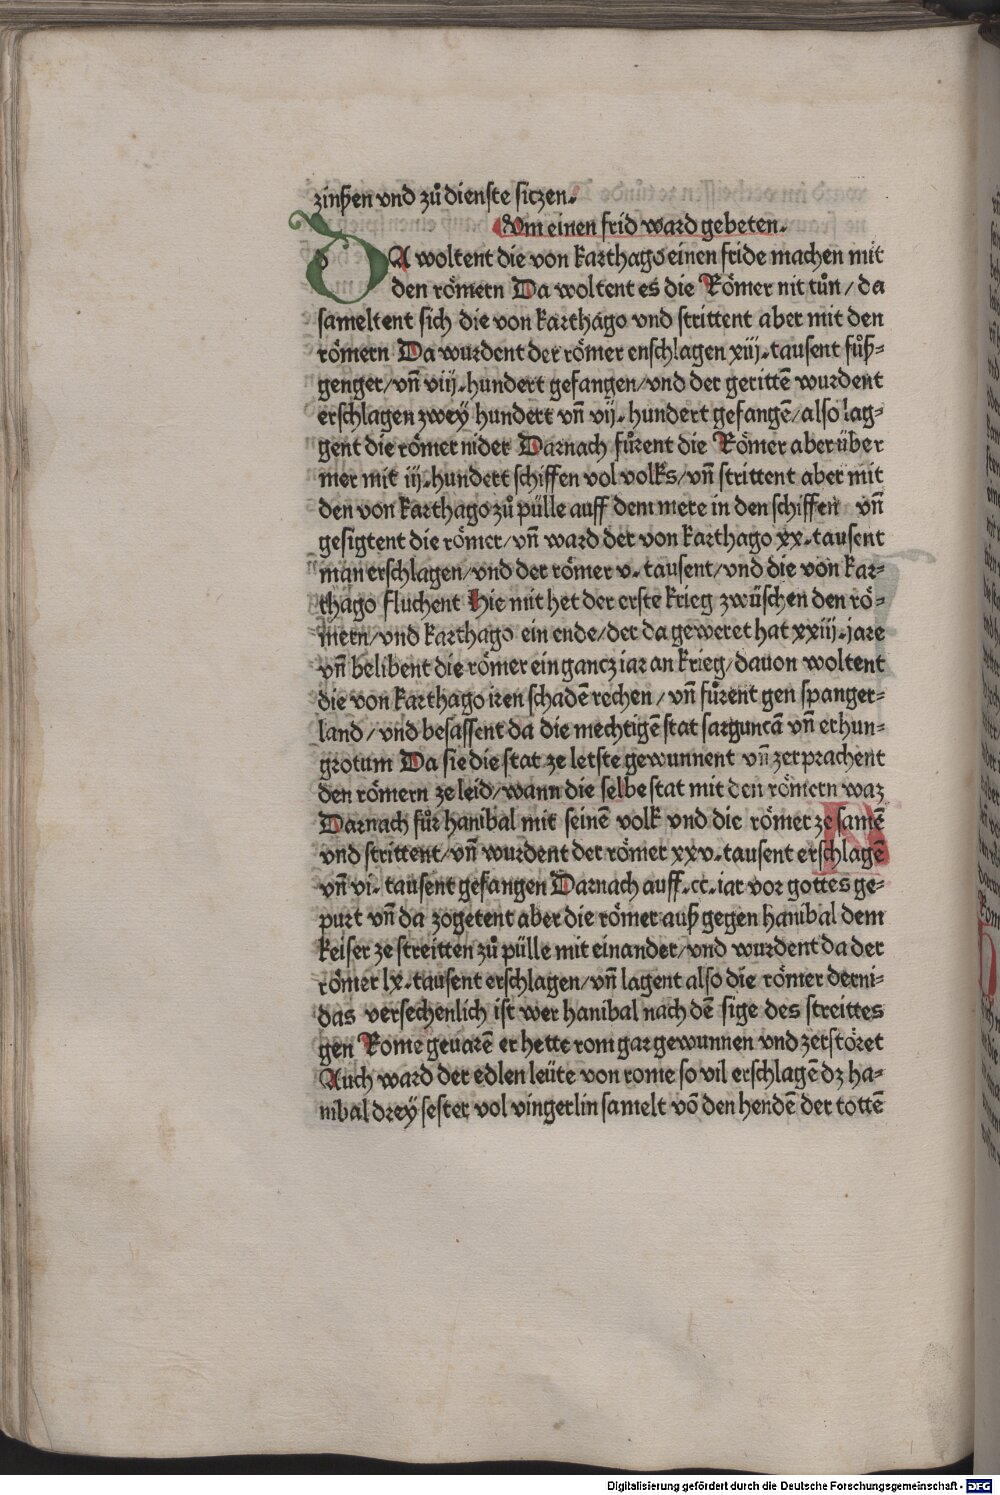 zinßen vnd zů dienste siczen.
Vm einen frid ward gebeten.
DA woltent die von karthago einen fride machen mit
den römern Da woltent es die Römer nit tůn/ da
sameltent sich die von karthago vnd strittent aber mit den
römern Da wurdent der römer enschlagen xiij. tausent fůß-
genger/ vñ viij. hundert gefangen/ vnd der gerittē wurdent
erschlagen zwey hundert vñ vij. hundert gefangē/ also lag-
gent die römer nider Darnach fůrent die Römer aber über
mer mit iij. hundert schiffen vol volks/ vñ strittent aber mit
den von karthago zů pülle auff dem mere in den schiffen vñ
gesigtent die römer/ vñ ward der von karthago xx. tausent
man erschlagen/ vnd der römer v. tausent/ vnd die von kar-
thago fluchent Hie mit het der erste krieg zwüschen den rö-
mern/ vnd karthago ein ende/ der da geweret hat xxiij. jare
vñ belibent die römer ein gancz iar an krieg/ dauon woltent
die von karthago iren schadē rechen/ vñ fůrent gen spanger-
land/ vnd besassent da die mechtigē stat sarguncā vñ erhun-
grotum Da sie die stat ze letste gewunnent vñ zerprachent
den römern ze leid/ wann die selbe stat mit den römern waz
Darnach fůr hanibal mit seinē volk vnd die römer ze samē
vnd strittent/ vñ wurdent der römer xxv. tausent erschlagē
vñ vi. tausent gefangen Darnach auff. cc. iar vor gottes ge-
purt vñ da zogetent aber die römer auß gegen hanibal dem
keiser ze streitten zů pülle mit einander/ vnd wurdent da der
römer lx. tausent erschlagen/ vñ lagent also die römer derni-
das versechenlich ist wer hanibal nach dē sige des streittes
gen Rome geuarē er hette rom gar gewunnen vnd zerstöret
Auch ward der edlen leüte von rome so vil erschlagē dz ha-
nibal drey sester vol vingerlin samelt vō den hendē der tottē
Digitalisierung gefördert durch die Deutsche Forschungsgemeinschaft - DFG